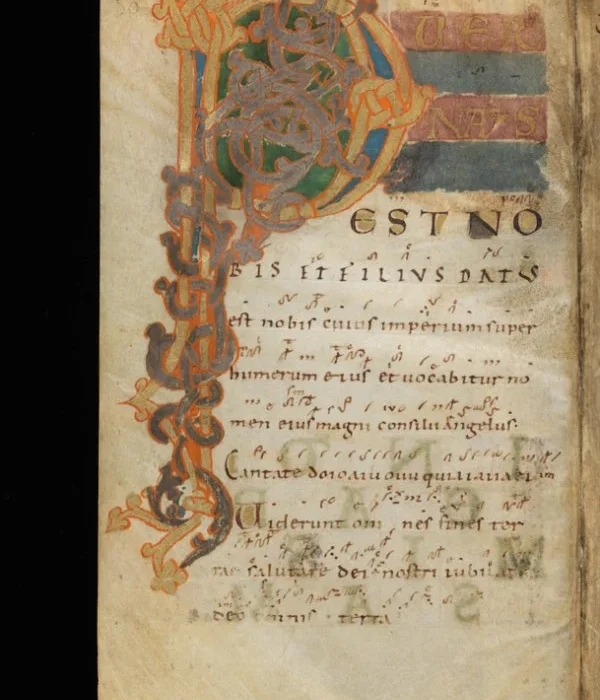 P UER
NATS
EST NO
BIS ET FILIVS DATVS
est nobis cuius imperium super
humerum eius et uocabitur no
men eius magni consilii angelus:
Cantate do
Uiderunt om nes fines ter
rae salutare dei nostri iubilate
deo omnis terra